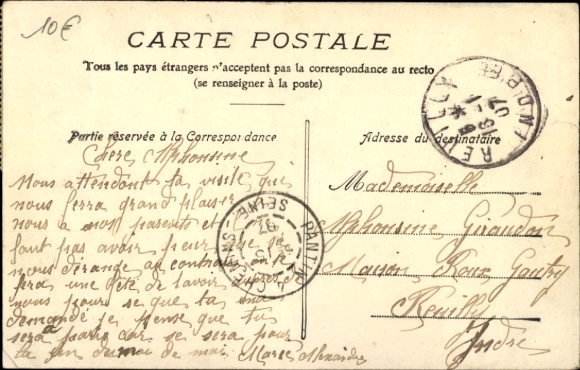 10€
CARTE POSTALE
Tous les pays étrangers n'acceptent pas la correspondance au recto
(se renseigner à la poste)
Partie réservée à la Correspondance
Adresse du destinataire
REUILLY INDRE
07
PANTIN
SEINE
Chere Alphonsine
Nous attendont ta visite que
nous ferra grand plaisir
nous a mos parents et
faut pas avoir peur
nous dérange au contraire
fera une fête de lavoir
nous pours se que ta me
demandé je pense que tu
sera a paris car se sera pour
ta fin du moi de mai Marie Alexandre
Mademoiselle
Alphonsine Giraudon
Maison Roux Gautry
Reuilly
Indre